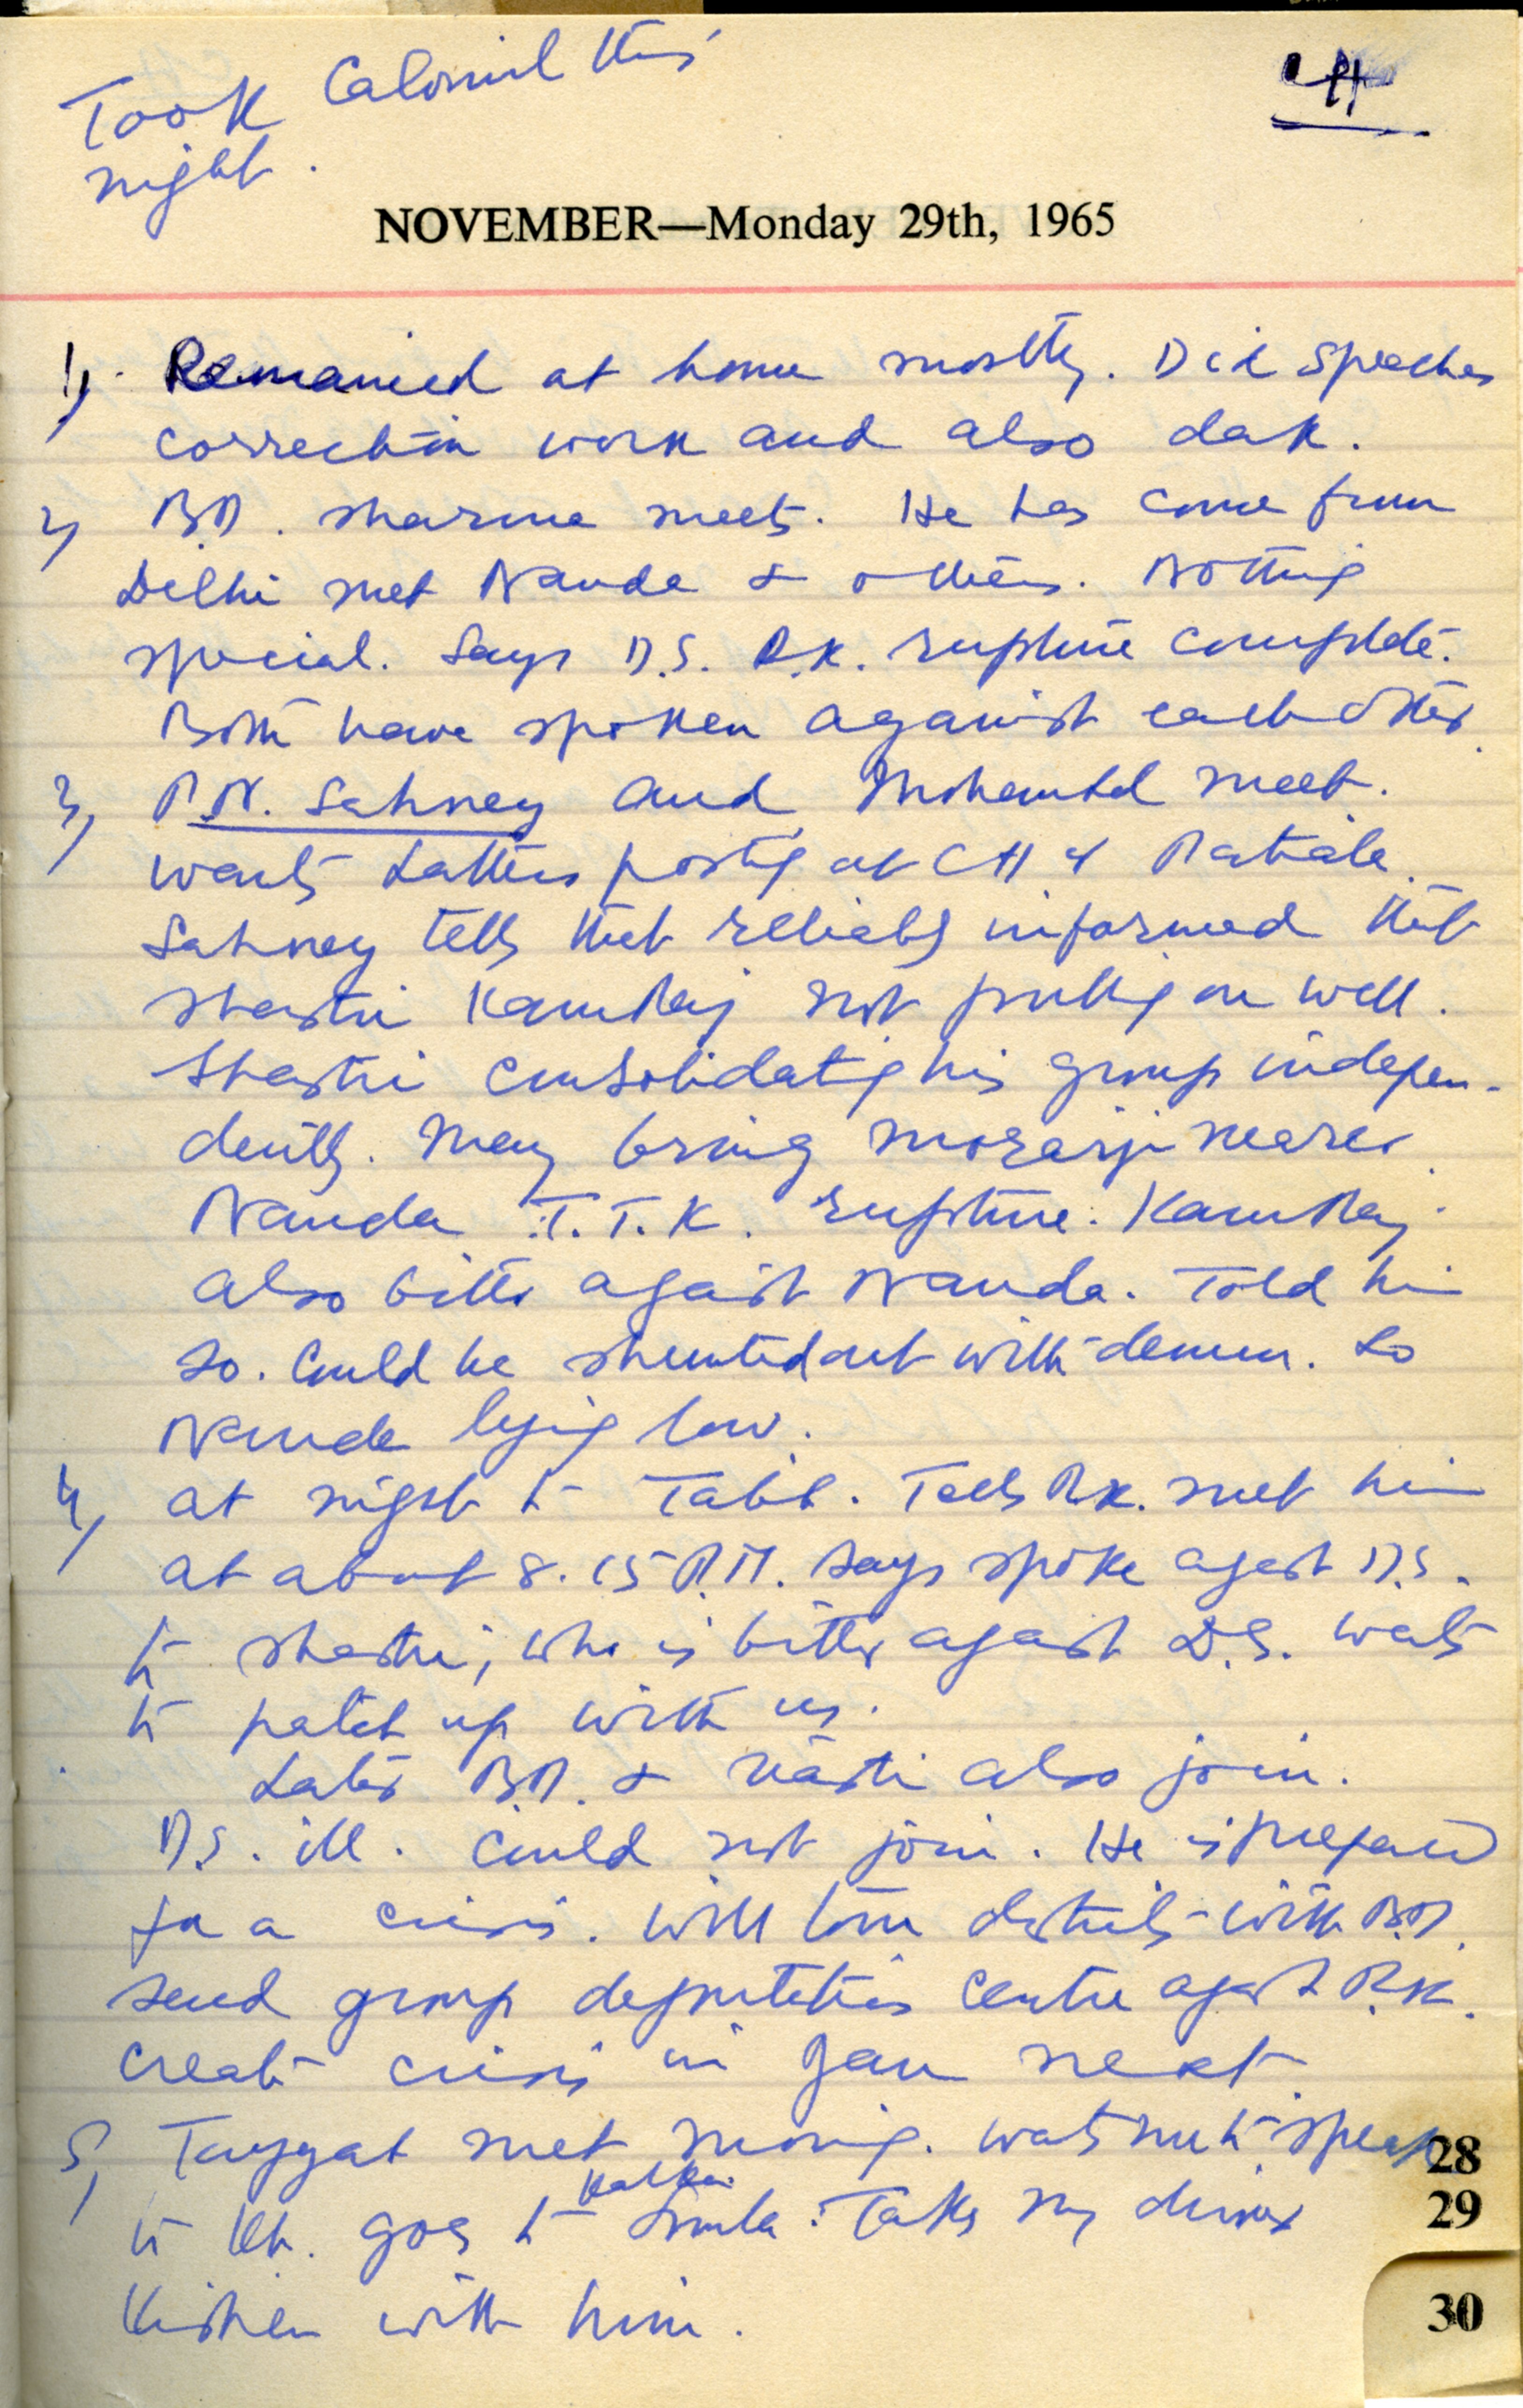 Took Calomil this
night.
CH
NOVEMBER—Monday 29th, 1965
1) Remained at home mostly. Did speeches
correction work and also dak.
2) B.D. Sharma meets. He has come from
Delhi met Nanda & others. Nothing
special. Says D.S. R.K. rupture complete.
Both have spoken against each other.
3) P.N. Sahney and Mohantd meet.
wants latters postg at CH or Patiala.
Sahney tells that reliably informed that
Shastri KamRaj not pullig on well.
Shastri consolidatig his group indepen-
dently. May bring Morarji nearer.
Nanda T.T.K. rupture. KamRaj
also bitter against Nanda. Told him
so. Could be shunted out with
Nanda lyig low.
4) At night to Tabib. Tells R.K. met him
at about 8.15 P.M. Says spoke agast D.S.
to Shastri, who is bitter agast D.S. wats
to patch up with us.
Later B.D. & also join.
D.S. ill. Could not join. He is prepared
for a crisis. Will tour districts with B.D.
Send group deputation Centre agast R.K.
Create crisis in Jan next.
5) Tayyab met morning. wats me to speak
to goes to Kalka Simla. Takes my driver
Kishen with him.
28
29
30